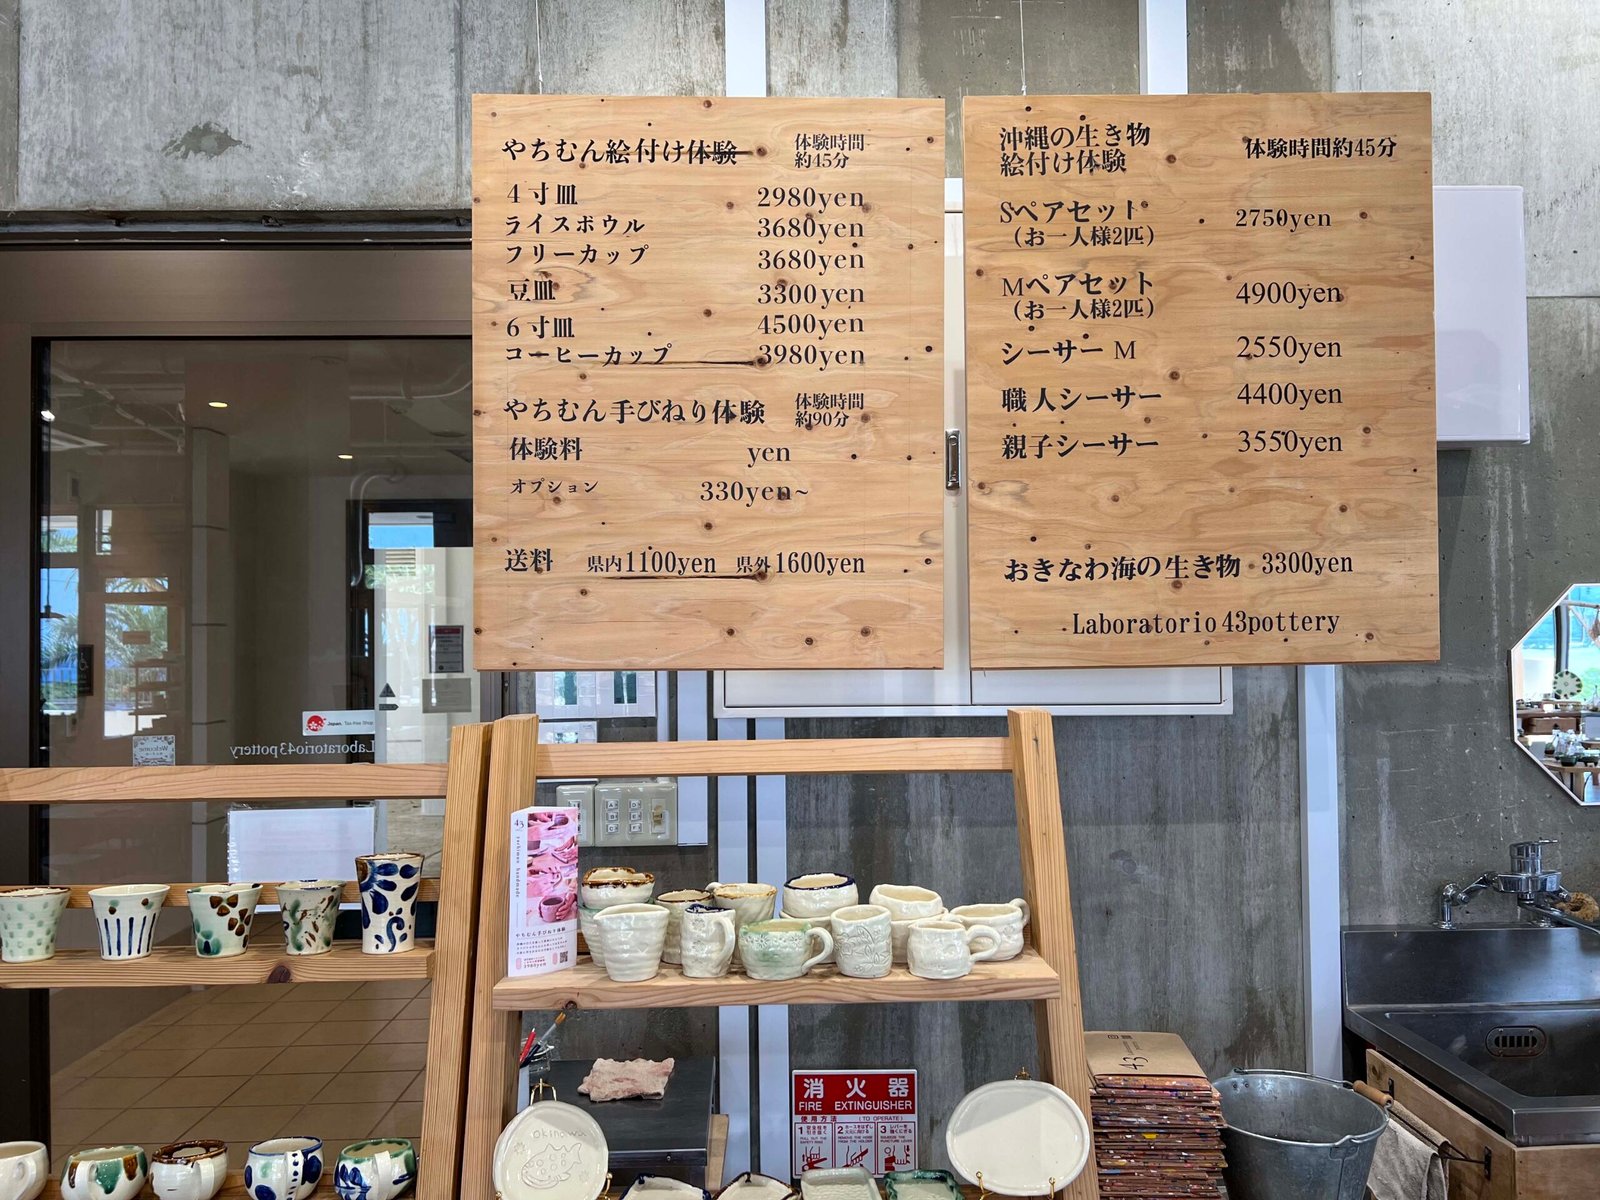 やちむん絵付け体験 体験時間
約45分
4寸皿 2980yen
ライスボウル 3680yen
フリーカップ 3680yen
豆皿 3300yen
6寸皿 4500yen
コーヒーカップ 3980yen
やちむん手びねり体験 体験時間
約90分
体験料 yen
オプション 330yen~
送料 県内1100yen 県外1600yen
沖縄の生き物
絵付け体験 体験時間約45分
Sペアセット 2750yen
(お一人様2匹)
Mペアセット 4900yen
(お一人様2匹)
シーサー M 2550yen
職人シーサー 4400yen
親子シーサー 3550yen
おきなわ海の生き物 3300yen
Laboratorio43pottery
Japan. Tax-free Shop
Welcome
Laboratorio43pottery
43
yachimun handmade
やちむん手びねり体験
3980yen
消火器
FIRE EXTINGUISHER
使用方法 (TO OPERATE)
1
2
3
okinawa
43